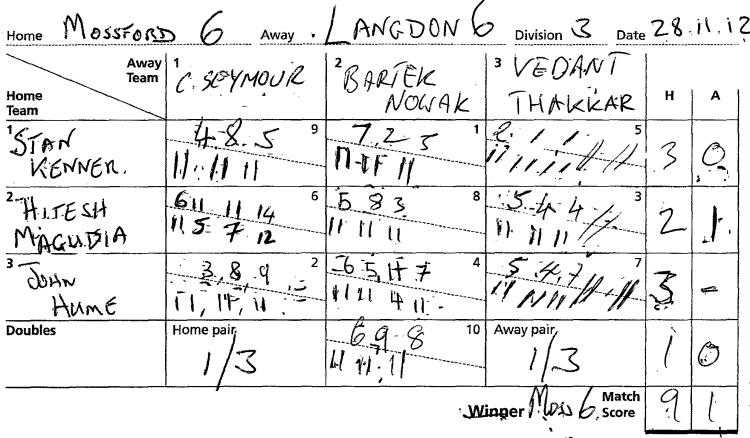 Home MOSSFORD 6 Away . LANGDON 6 Division 3 Date 28.11.12
Away Team 1 C. SEYMOUR 2 BARTEK NOWAK 3 VEDANT THAKKAR H A
Home Team
1 STAN KENNER. 4 8. 5 9 7, 2 3 1 2. 1 1 5 3 0
11. 11 11 11 11 11 11 11 11
2 HITESH MAGUDIA 6 11 11 14 6 5 8 3 8 5 4 4 3 2 1
11 5 7 12 11 11 11 11 11 11
3 JOHN HUME 3, 8, 9 2 6 5, 11 7 4 5 4, 7 7 3 -
11, 11, 11 11 11 4 11 11 11 11
Doubles Home pair 1/3 6 9 8 10 Away pair 1/3 1 0
11 11. 11
Winner Moss 6, Match Score 9 1